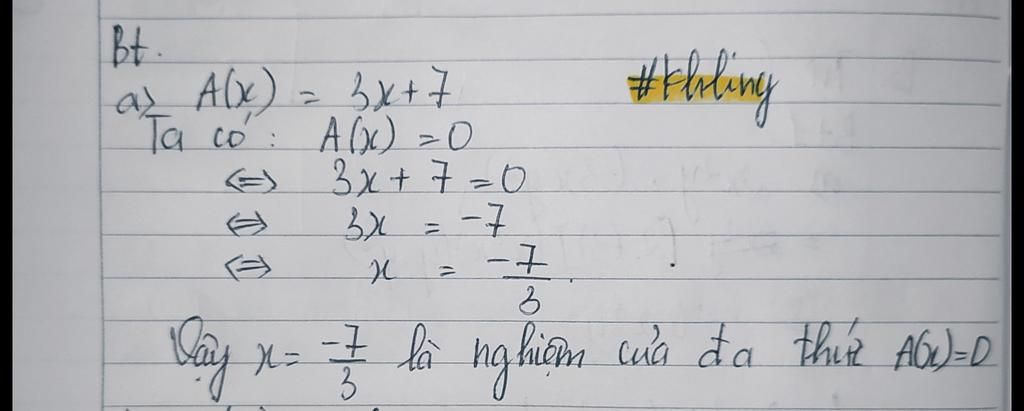 Bt.
a) A(x) = 3x+7
#khling
Ta có: A(x) = 0
⇔ 3x + 7 = 0
⇔ 3x = -7
⇔ x = -7/3.
Vậy x = -7/3 là nghiệm của đa thức A(x)=0